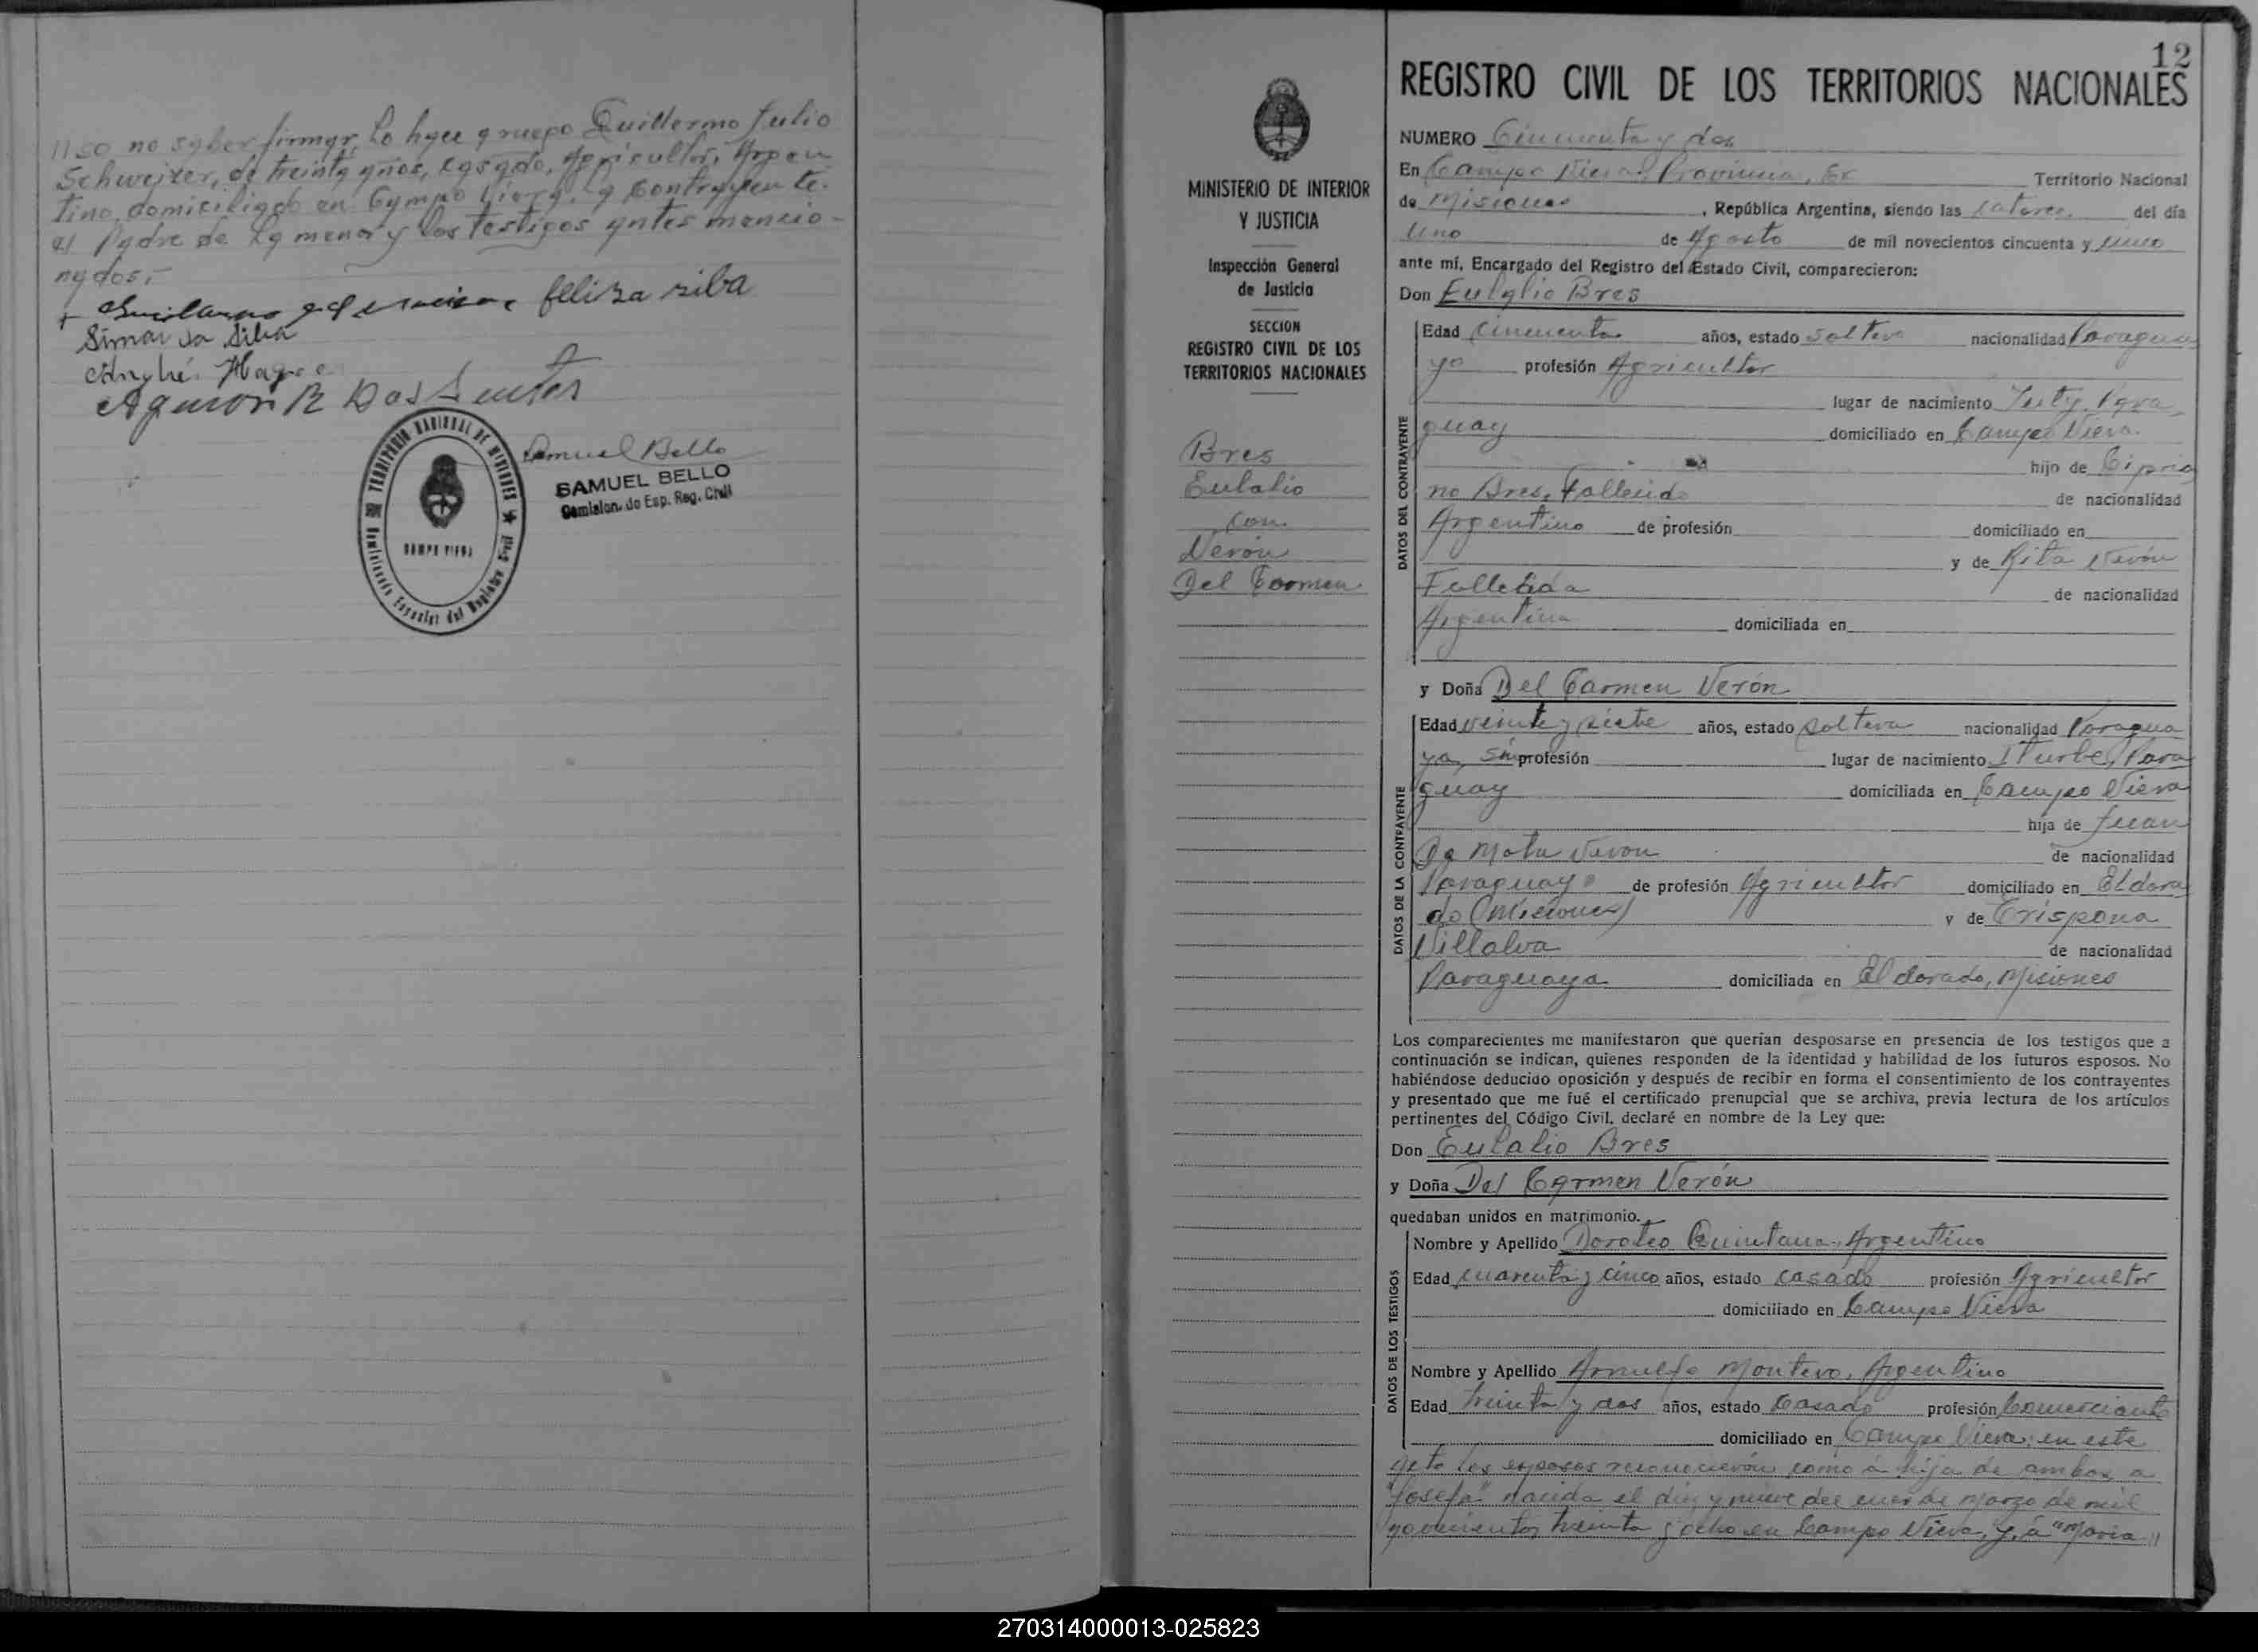 //so no saber firmar, lo hace a ruego Guillermo Julio
Schweizer, de treinta años, casado, Agricultor, Argen
tino, domiciliado en Campo Viera. La Contrayente.
el Padre de la menor y los testigos antes mencio-
nados.-
feliza silba
Simai da Silva
DosSantos
TERRITORIO NACIONAL DE MISIONES
CAMPO VIERA
Comisionado Especial del Registro Civil
Samuel Bello
SAMUEL BELLO
Comision. do Esp. Reg. Civil
12
REGISTRO CIVIL DE LOS TERRITORIOS NACIONALES
MINISTERIO DE INTERIOR
Y JUSTICIA
Inspección General
de Justicia
SECCION
REGISTRO CIVIL DE LOS
TERRITORIOS NACIONALES
Bres
Eulalio
con
Verón
Del Carmen
NUMERO Cincuenta y dos
En Campo Viera, Provincia, Ex Territorio Nacional
de Misiones, República Argentina, siendo las catorce del día
Uno de Agosto de mil novecientos cincuenta y cinco
ante mí, Encargado del Registro del Estado Civil, comparecieron:
Don Eulalio Bres
DATOS DEL CONTRAYENTE
Edad cincuenta años, estado soltero nacionalidad Paragua
yo profesión Agricultor
lugar de nacimiento Yuty, Para
guay domiciliado en Campo Viera.
hijo de Cipria
no Bres, fallecido de nacionalidad
Argentino de profesión domiciliado en
y de Rita Verón
Fallecida de nacionalidad
Argentina domiciliada en
y Doña Del Carmen Verón
DATOS DE LA CONTRAYENTE
Edad veinte y siete años, estado soltera nacionalidad Paragua
ya, sin profesión lugar de nacimiento Iturbe, Para
guay domiciliada en Campo Viera
hija de Juan
De Mata Veron de nacionalidad
Paraguayo de profesión Agricultor domiciliado en Eldora
do (Misiones) y de Crispona
Villalva de nacionalidad
Paraguaya domiciliada en Eldorado, Misiones
Los comparecientes me manifestaron que querían desposarse en presencia de los testigos que a
continuación se indican, quienes responden de la identidad y habilidad de los futuros esposos. No
habiéndose deducido oposición y después de recibir en forma el consentimiento de los contrayentes
y presentado que me fué el certificado prenupcial que se archiva, previa lectura de los artículos
pertinentes del Código Civil, declaré en nombre de la Ley que:
Don Eulalio Bres
y Doña Del Carmen Verón
quedaban unidos en matrimonio.
DATOS DE LOS TESTIGOS
Nombre y Apellido Doroteo Quintana, Argentino
Edad cuarenta y cinco años, estado casado profesión Agricultor
domiciliado en Campo Viera
Nombre y Apellido Arnulfo Montero, Argentino
Edad treinta y dos años, estado Casado profesión Comerciante
domiciliado en Campo Viera; en este
acto los esposos reconocierón como a hija de ambos, a
"Josefa" nacida el diez y nueve del mes de Marzo de mil
novecientos treinta y ocho en Campo Viera, y, a "Maria //
270314000013-025823